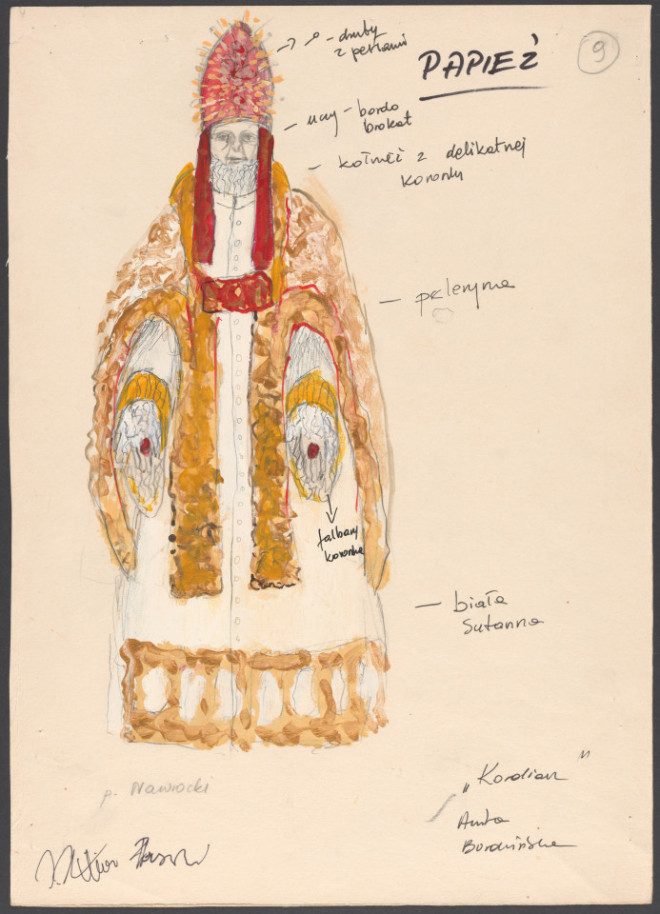 PAPIEŻ
9
→ - druty
z perłami
— uszy - bordo
brokat
— kołnież z delikatnej
koronki
— peleryna
falbany
koronka
— biała
Sutanna
p. Nawrocki
„Kordian"
Anita